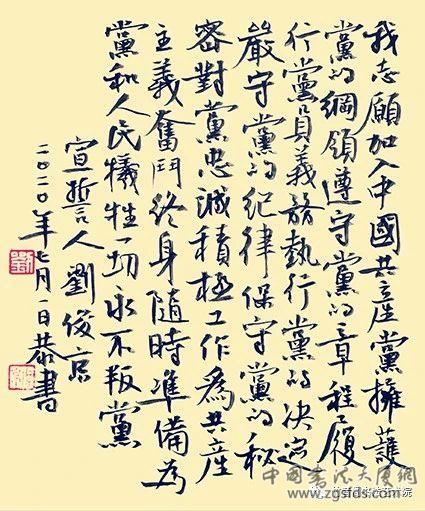 我志願加入中國共産黨擁護
黨的綱領遵守黨的章程履
行黨員義務執行黨的决定
嚴守黨的紀律保守黨的秘
密對黨忠誠積極工作爲共産
主義奮鬥終身隨時準備为
黨和人民犧牲一切永不叛黨
宣誓人劉俊京
二〇二〇年七月一日恭書
劉
中國書法大厦網
www.zgsfds.com